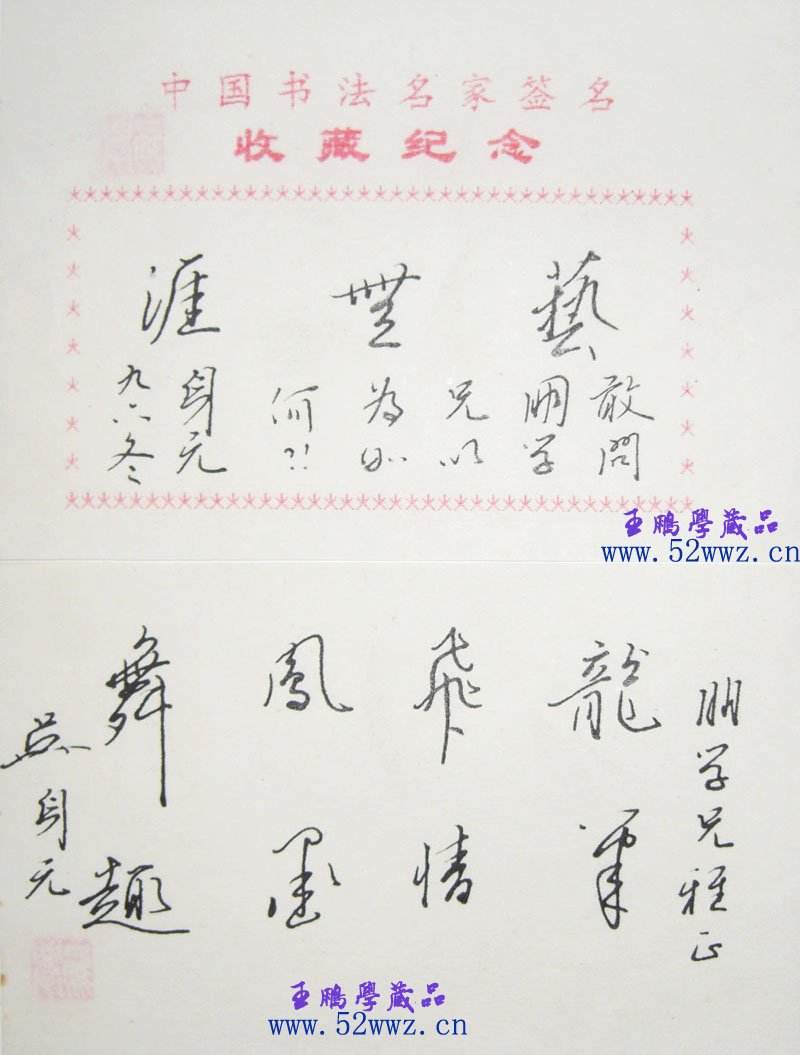 中国书法名家签名
收藏纪念
藝無涯
敢問
朋学
兄以
為如
何?!
身元
九六冬
王鵬學藏品
www.52wwz.cn
朋学兄雅正
龍飛鳳舞
筆情墨趣
吴身元
王鵬學藏品
www.52wwz.cn